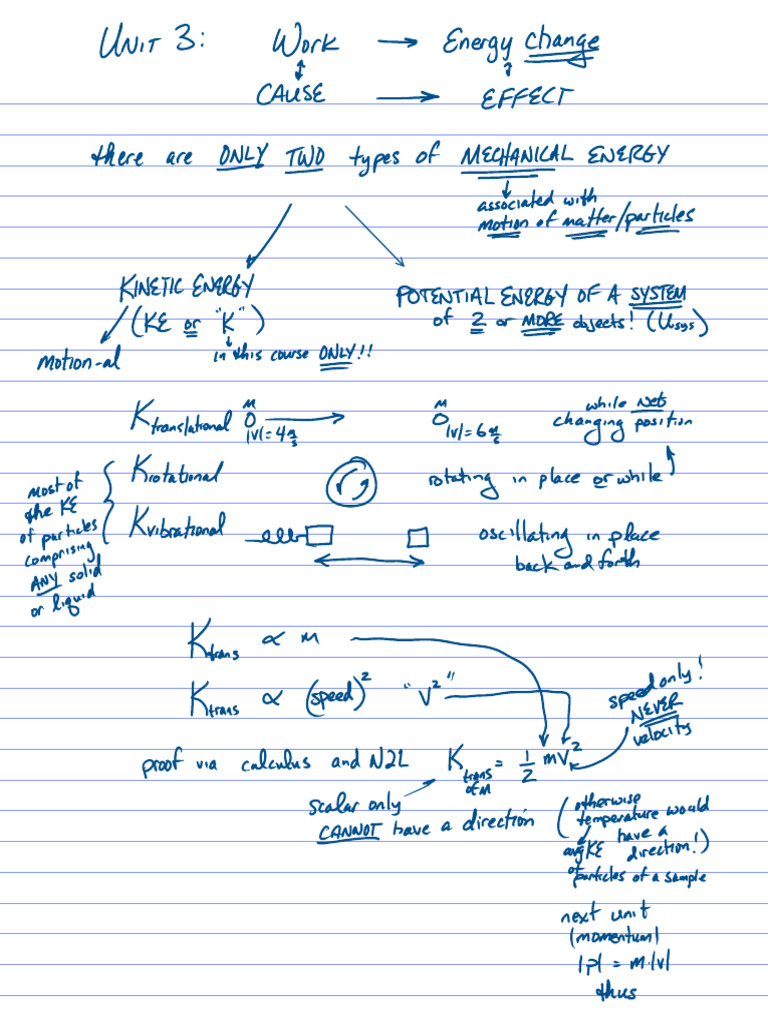 UNIT 3: WORK → Energy change
CAUSE → EFFECT
there are ONLY TWO types of MECHANICAL ENERGY
associated with
motion of matter/particles
KINETIC ENERGY
(KE or "K")
in this course ONLY!!
Motion-al
POTENTIAL ENERGY OF A SYSTEM
of 2 or MORE objects! (Usys)
Ktranslational M |v|=4 m/s M |v|=6 m/s
while Net
changing position
Krotational rotating in place or while
Kvibrational oscillating in place
back and forth
most of
the KE
of particles
comprising
ANY solid
or liquid
Ktrans ∝ m
Ktrans ∝ (speed)² "V²"
speed only!
NEVER
velocity
proof via calculus and N2L Ktrans of M = 1/2 mv²
scalar only
CANNOT have a direction
(otherwise
temperature would
have a
direction!)
avg KE
of particles of a sample
next unit
(momentum)
|p| = m·|v|
thus